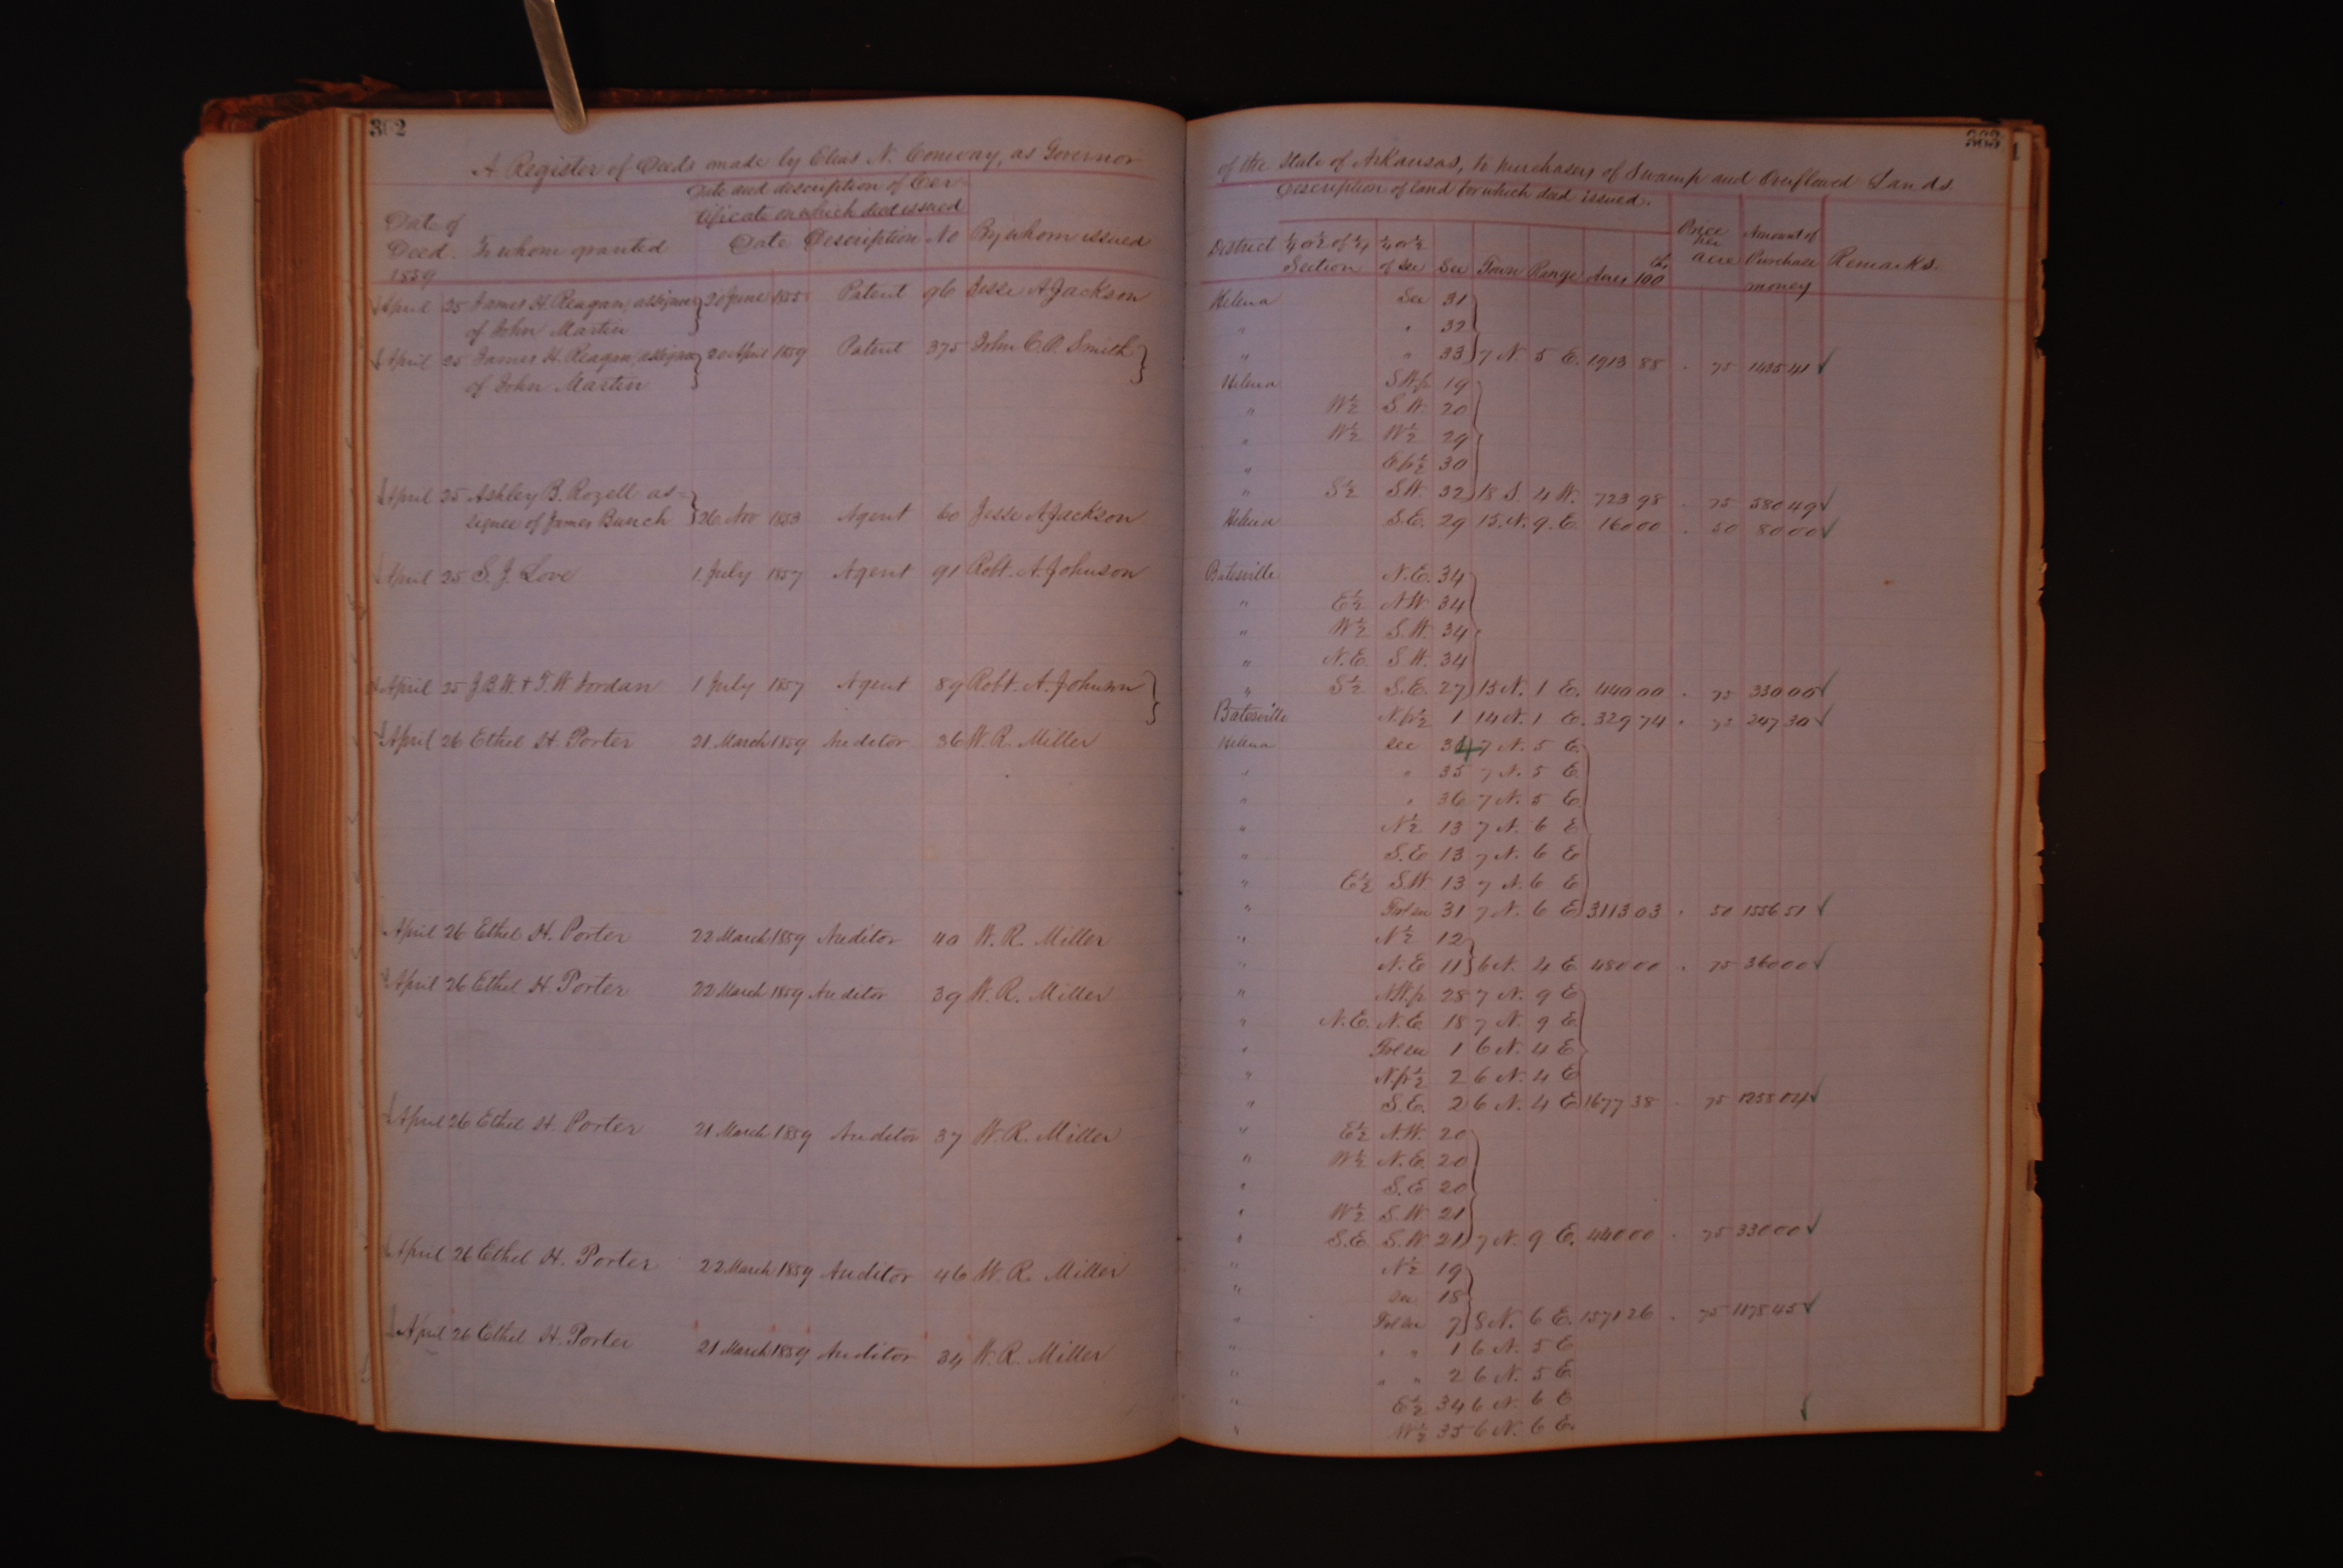 302
A Register of Deeds made by Elias N. Conway, as Governor
Date and description of Cer-
tificate on which deed issued
Date of
Deed. To whom granted Date Description No By whom issued
1859
April 25 James H. Reagan, assignee 20 June 1855 Patent 96 Jesse A Jackson
of John Martin
April 25 James H. Reagan, assignee 20 April 1859 Patent 375 John C.P. Smith
of John Martin
April 25 Ashley B. Rozell as-
signee of James Bunch 26 Nov 1853 Agent 60 Jesse A Jackson
April 25 S. J. Love 1 July 1857 Agent 91 Robt. A. Johnson
April 25 J.B.W. & T.W Jordan 1 July 1857 Agent 89 Robt. A. Johnson
April 26 Ethel H. Porter 21 March 1859 Auditor 36 W. R. Miller
April 26 Ethel H. Porter 22 March 1859 Auditor 40 W. R. Miller
April 26 Ethel H. Porter 22 March 1859 Auditor 39 W. R. Miller
April 26 Ethel H. Porter 21 March 1859 Auditor 37 W. R. Miller
April 26 Ethel H. Porter 22 March 1859 Auditor 46 W. R. Miller
April 26 Ethel H. Porter 21 March 1859 Auditor 34 W. R. Miller
303
of the State of Arkansas, to purchasers of Swamp and Overflowed Lands
Description of land for which deed issued.
District ¼ or ½ of ¼ Section ¼ or ½ of Sec Sec Town Range Acres 100 Price per acre Amount of Purchase money Remarks.
Helena Sec 31
" " 32
" " 33 7 N 5 E. 1913 88 . 75 1435 41 ✓
Helena SW fr 19
" W½ S.W. 20
" W½ W½ 29
" E fr ½ 30
" S½ SW. 32 18 S. 4 W. 723 98 . 75 580 49 ✓
Helena S.E. 29 15. N. 9. E. 160 00 . 50 80 00 ✓
Batesville N.E. 34
" E½ N.W. 34
" W½ S.W. 34
" N.E. S.W. 34
" S½ S.E. 27 15 N. 1 E. 440 00 . 75 330 00 ✓
Batesville N. fr ½ 1 14 N. 1 E. 329 74 . 75 247 30 ✓
Helena sec 34 7 N. 5 E.
" " 35 7 N. 5 E
" " 36 7 N. 5 E.
" N½ 13 7 N. 6 E
" S.E 13 7 N. 6 E
" E½ S.W 13 7 N. 6 E
" Frl sec 31 7 N. 6 E 3113 03 . 50 1556 51 ✓
" N½ 12
" N.E 11 6 N. 4 E 480 00 . 75 360 00 ✓
" NW fr 28 7 N. 9 E
" N.E. N.E. 18 7 N. 9 E.
" Frl sec 1 6 N. 4 E
" N. fr ½ 2 6 N. 4 E
" S.E. 2 6 N. 4 E 1677 38 . 75 1258 04 ✓
" E½ N.W. 20
" W½ N.E. 20
" S.E 20
" W½ S.W. 21
" S.E. S.W 21 7 N. 9 E. 440 00 . 75 330 00 ✓
" N½ 19
" sec 18
" Frl sec 7 8 N. 6 E. 1571 26 . 75 1178 45 ✓
" " " 1 6 N. 5 E
" " " 2 6 N. 5 E
" E½ 34 6 N. 6 E ✓
" W½ 35 6 N. 6 E.